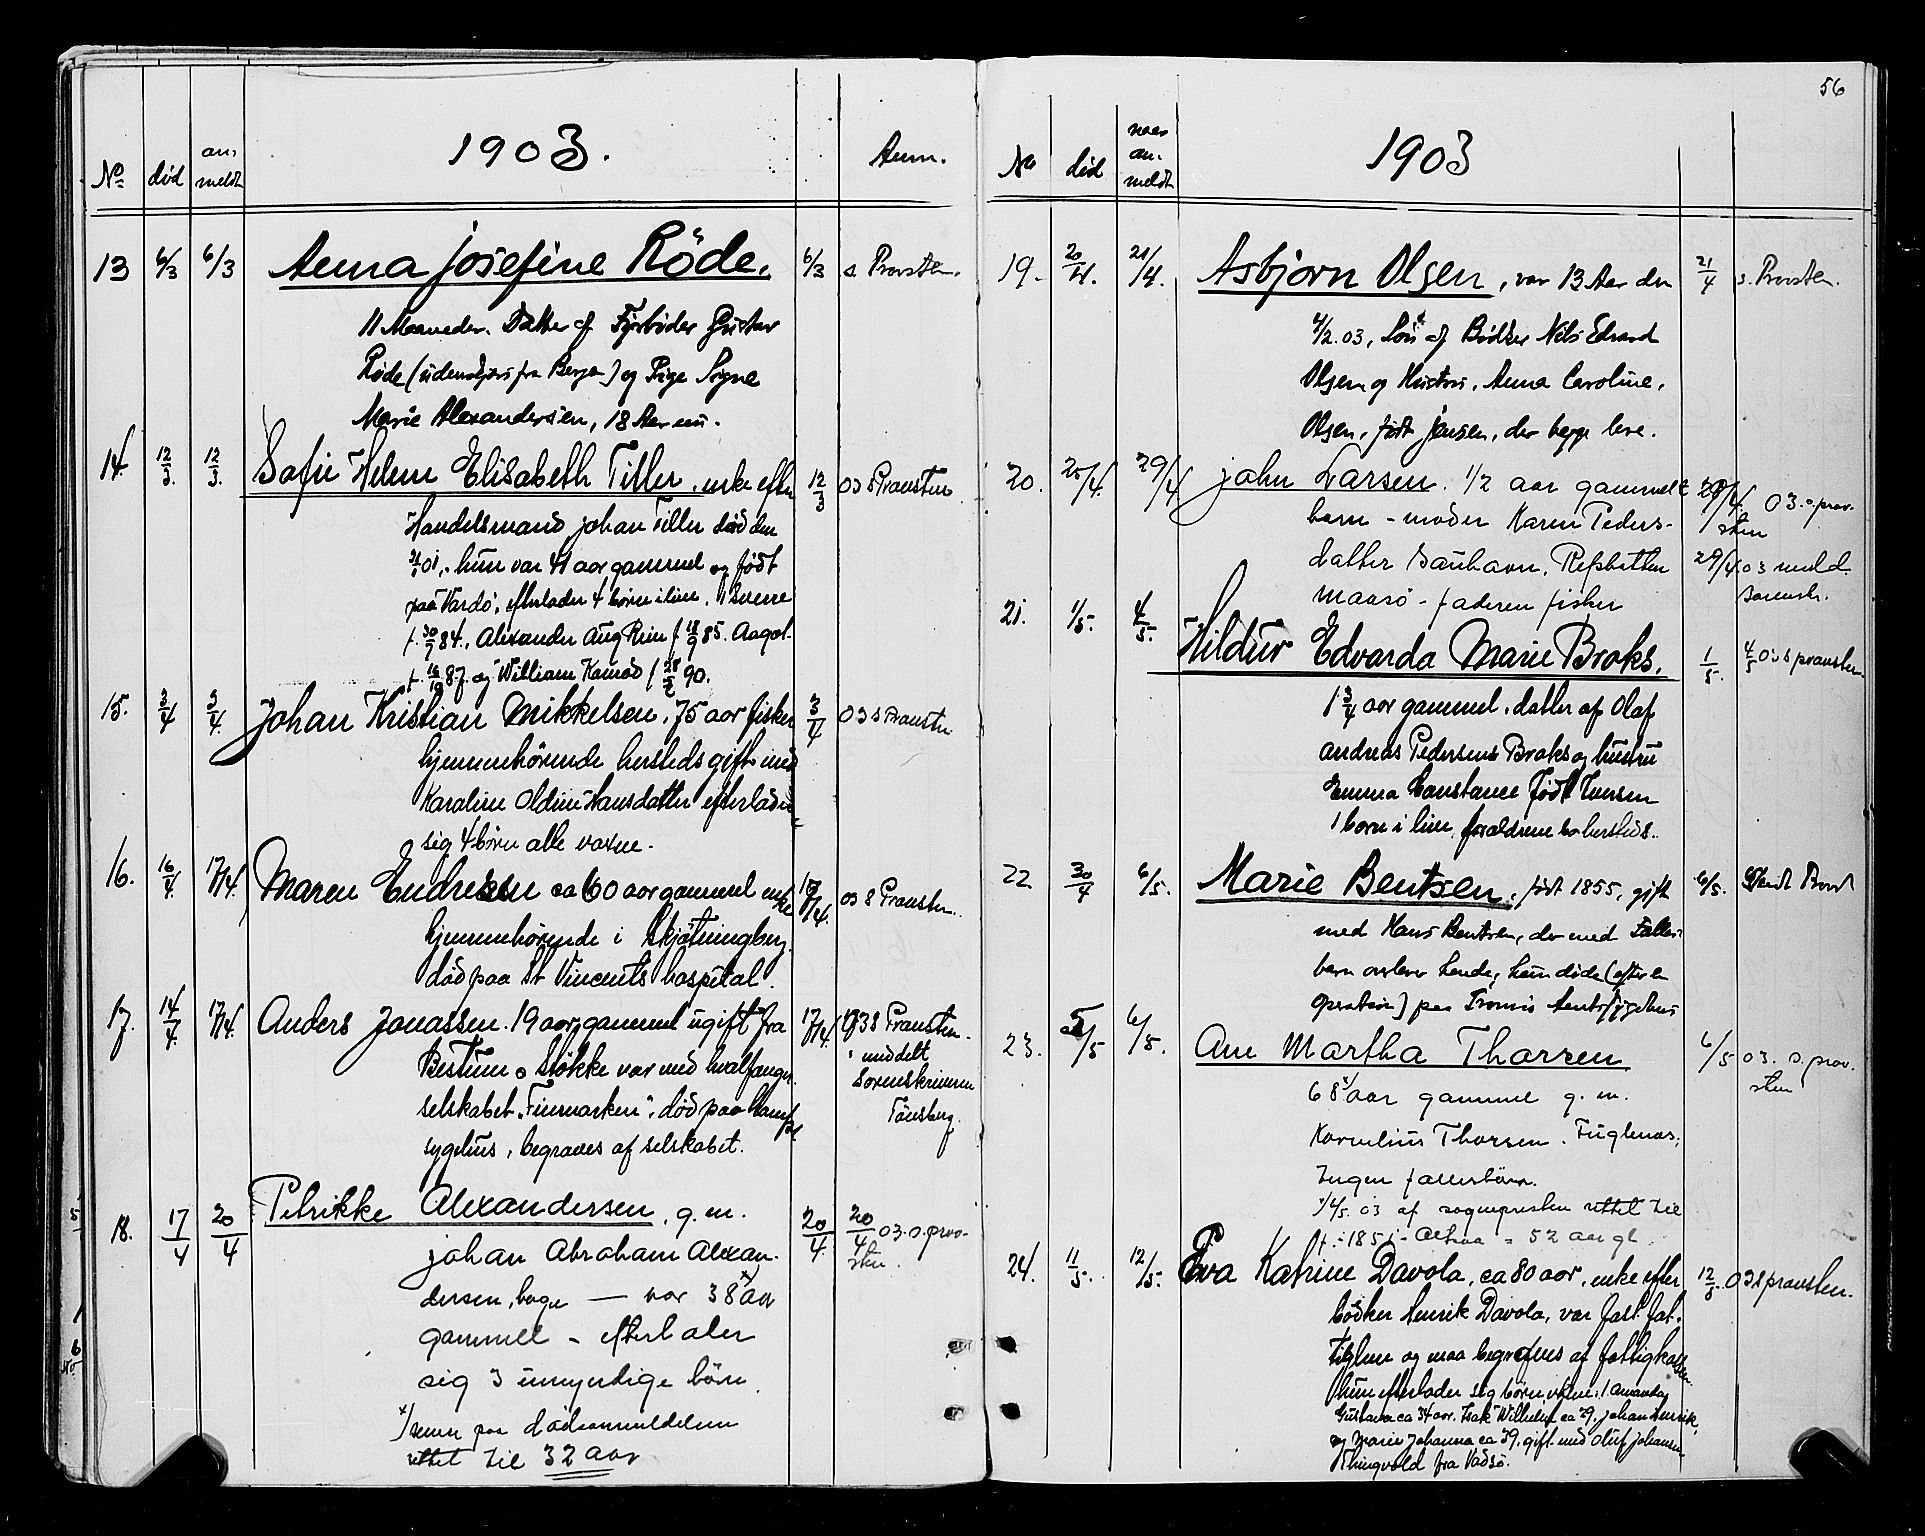 1903.
No død an-meldt Anm.
13 6/3 6/3 Anna Josefine Röde. 6/3 s Provsten.
11 Maaneder. Datter af Fyrbøder Gustav
Røde (udenbys fra Bergen) og Pige Signe
Marie Alexandersen, 18 Aar
14. 12/3. 12/3. Sofie Helene Elisabeth Tiller. enke efter 12/3 03 s Provsten
Handelsmand Johan Tiller død den
01, hun var 41 aar gammel og født
paa Vardö, efterlader 4 børn i live, 1 Sverre
f. 30/7 84., Alexander Aug Rein f 18/9 85. Aagot
f. 87. og William Konrad f 90.
15. 3/4 3/4. Johan Kristian Mikkelsen. 75 aar fisker 3/4 03 s Provsten
hjemmehörende hersteds gift med
Karoline Oldine Hansdatter efterlader
sig 4 børn alle voxne.
16. 16/4. 17/4. Maren Endresen ca 60 aar gammel enke 17/4. 03 s Provsten.
hjemmehörende i Skjötningberg.
død paa St Vincents hospital.
17. 14/4. 17/4. Anders Jonassen. 19 aar gammel ugift fra 17/4. 03 s Provsten
Bestum o Stokke var med hvalfanger- meddelt
selskabet "Finmarken", död paa Hamf. Sorenskriveren
sygehus, begraves af selskabet. Tönsberg.
18. 17/4 20/4 Petrikke Alexandersen, g.m. 20/4. 20/4 03. s. prov-sten.
Johan Abraham Alexan-
dersen, — var 38 x) aar
gammel - efterlader
sig 3 umyndige börn.
x) senere paa dødsanmeldelsen
rettet til 32 aar
56
1903
No død an-meldt
19. 20/4. 21/4. Asbjørn Olsen, var 13 Aar den 21/4 s. Provsten.
4/2.03, Søn af Bødker Nils Edvard
Olsen og Hustru, Anna Caroline,
Olsen, født Jensen, der begge leve.
20. 25/4. 29/4 John Larsen. 1/2 aar gammelt 29/4. 03. s. prov-sten
barn - moder Karen Peders-
datter Sauhavn, Repbetten 29/4 03 meld.
Maasö - faderen fisker Sorenskr.
21. 1/5. 4/5. Hildur Edvarda Marie Broks. 1/5. 4/5 03 s provsten
1 3/4 aar gammel. datter af Olaf
Andreas Pedersens Broks og hustru
Emma Constance født Iversen
1 barn i live, forældrene bo hersteds.
22. 30/4 6/5. Marie Bentsen, født 1855, gift 6/5. Sendt Provst
med Hans Bentsen, der med Fælles-
barn overlever hende, hun døde (efter en
Operation) paa Tromsö Amtssygehus
23. 5/5 6/5. Ane Martha Thorsen 6/5 03. s. prov-sten
68 x) aar gammel g.m.
Kornelius Thorsen. Fuglenes,
Ingen fællesbörn.
x) 14/5. 03 af sognepresten rettet til
f. 1851 - Altvaa = 52 aar gl
24. 11/5. 12/5. Eva Katrine Davola, ca 80 aar, enke efter 12/5. 03 s provsten.
bödker Henrik Davola, var fast fat-
tiglem og maa begraves af fattigkassen.
hun efterlader sig börn voxne: 1 Amanda
Gustava ca 34 aar. Isak Wilhelm ca 29. Johan Henrik
og Marie Johanna ca 39. gift med Oluf Johansen
Thingvold fra Vadsö.